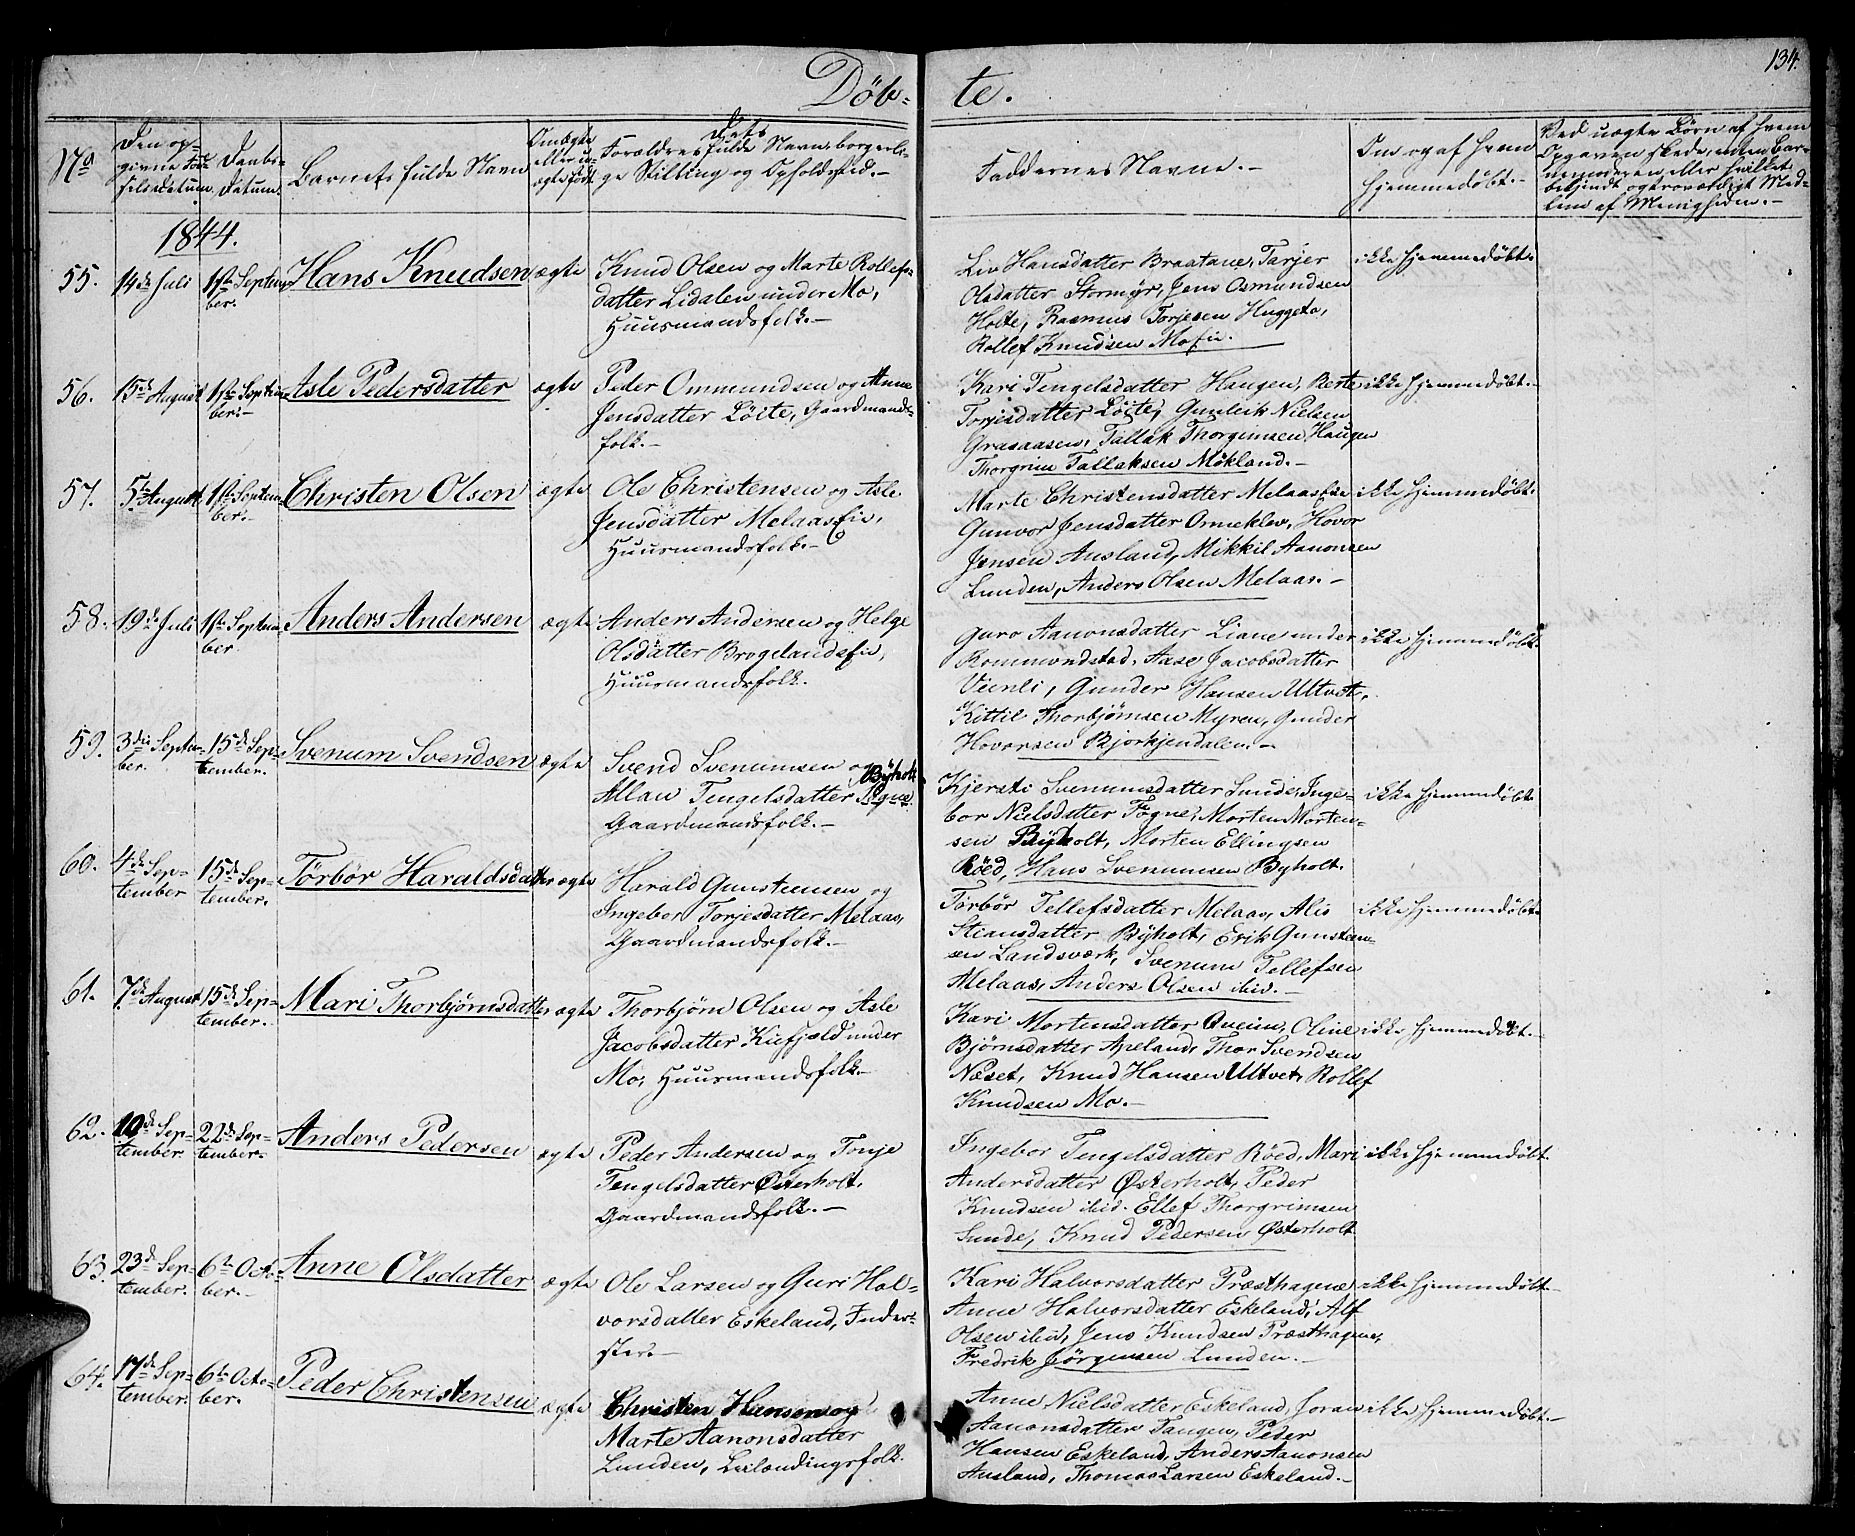 134.
Døb- te.
No
Den op-
givne Fød-
selsdatum.
Daabs-
Datum.
Barnets fulde Navn
Om ægte
eller u-
ægte født
Dets
Forældres fulde Navn borgerli-
ge Stilling og Opholdssted.-
Faddernes Navne.-
Om og af hvem
hjemmedøbt.-
Ved uægte Børn af hvem
Opgaven skede, uden Bar-
nemoderen, eller hvilket
bekjendt og troværdigt Med-
lem af Menigheden.-
1844.
55. 14de Juli 1ste Septem-
ber. Hans Knudsen ægte
Knud Olsen og Marte Rollefs-
datter Lidalen under Mo,
Huusmandsfolk.-
Liv Hansdatter Braatane, Tarjer
Olsdatter Stormyr, Jens Osmundsen
Holte, Rasmus Torjesen Huggeto,
Rollef Knudsen Mosie.
ikke hjemmedøbt.
56. 15de August 1ste Septem-
ber.- Asle Pedersdatter ægte
Peder Ommundsen og Anne
Jensdatter Löite, Gaardmands-
folk.-
Kari Tengelsdatter Haugen, Berte
Torjesdatter Löite, Gunleik Nielsen
Graaaasen, Tallak Thorgrimsen Haugen
Thorgrim Tallaksen Mokland.-
ikke hjemmedøbt.-
57. 5te August 1ste Septem-
ber.- Christen Olsen ægte
Ole Christensen og Asle
Jensdatter Melaasfie,
Huusmandsfolk.-
Marte Christensdatter Melaasfie
Gunvor Jensdatter Ormeklev, Hovor
Jensen Ausland, Mikkil Aanonsen
Lunden, Anders Olsen Melaas.-
ikke hjemmedøbt.
58. 19de Juli 1ste Septem-
ber. Anders Andersen ægte
Anders Andersen og Helge
Olsdatter Brogelandsfie,
Huusmandsfolk.
Guro Aanonsdatter Liane under
Rommundstad, Aase Jacobsdatter
Vienli, Gunder Hansen Ultvet,
Kittil Thorbjørnsen Myren, Gunder
Hovorsen Bjorkjendalen.-
ikke hjemmedøbt.
59. 3die Septem-
ber. 15de Sep-
tember. Svenum Svendsen ægte
Svend Svenumsen og Byholt
Allau Tengelsdatter Fogne.
Gaardmandsfolk.-
Kjersti Svenumsdatter Sunde, Inge-
bor Nielsdatter Fogne, Morten Morten-
sen Byholt, Morten Ellingsen
Röed, Hans Svenumsen Byholt.
ikke hjemmedøbt.
60. 4de Sep-
tember 15de Sep-
tember. Torbør Haraldsdatter ægte
Harald Gunsteensen og
Ingebor Torjesdatter Melaas,
Gaardmandsfolk.-
Torbør Tellefsdatter Melaas, Alis
Steansdatter Byholt, Erik Gunsteen-
sen Landsværk, Svenum Tellefsen
Melaas, Anders Olsen ibid.-
ikke hjemmedøbt.
61. 7de August 15de Sep-
tember. Mari Thorbjørnsdatter ægte
Thorbjørn Olsen og Asle
Jacobsdatter Kiefjeld under
Mo, Huusmandsfolk.-
Kari Mortensdatter Queim, Oline
Bjørnsdatter Apeland, Thor Svendsen
Næset, Knud Hansen Ultvet, Rollef
Knudsen Mo.-
ikke hjemmedøbt.-
62. 10de Sep-
tember. 22de Sep-
tember. Anders Pedersen ægte
Peder Andersen og Tonje
Tengelsdatter Østerholt,
Gaardmandsfolk.-
Ingebor Tengelsdatter Röed, Mari
Andersdatter Østerholt, Peder
Knudsen ibid. Ellef Thorgrimsen
Sunde, Knud Pedersen Østerholt
ikke hjemmedøbt.
63. 23de Sep-
tember. 6te Octo-
ber.- Anne Olsdatter ægte
Ole Larsen og Guri Hal-
vorsdatter Eskeland, Inder-
ster.-
Kari Halvorsdatter Præsthagne
Anne Halvorsdatter Eskeland, Alf
Olsen ibid, Jens Knudsen Præsthagne,
Fredrik Jörgensen Lunden.-
ikke hjemmedøbt.-
64. 17de Sep-
tember. 6te Octo-
ber. Peder Christensen ægte
Christen Hansen og
Marte Aanonsdatter
Lunden, Leilændingsfolk.
Anne Nielsdatter Eskeland, Joran
Aanonsdatter Tangen, Peder
Hansen Eskeland, Anders Aanonsen
Ausland, Thomas Larsen Eskeland.-
ikke hjemmedøbt.-